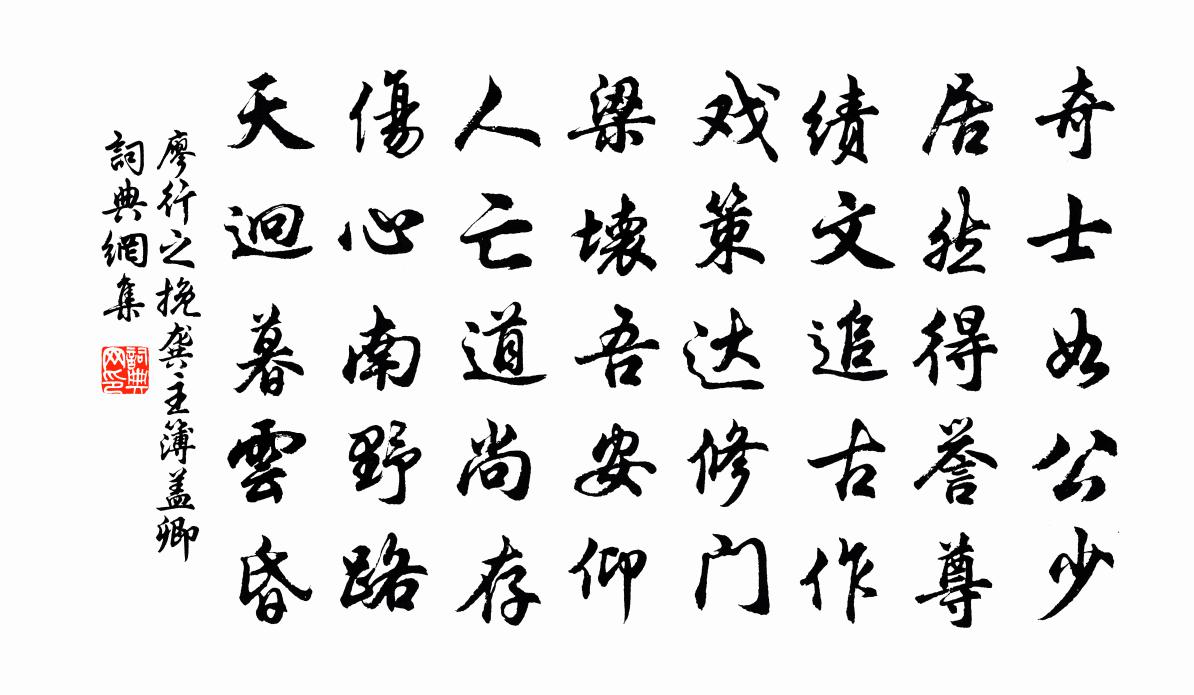 奇士如公少
居然得誉尊
绩文追古作
戏策达修门
梁壞吾安仰
人亡道尚存
傷心南野路
天迥暮雲昏
廖行之挽龚主簿盖卿
詞典網集
詞典网印